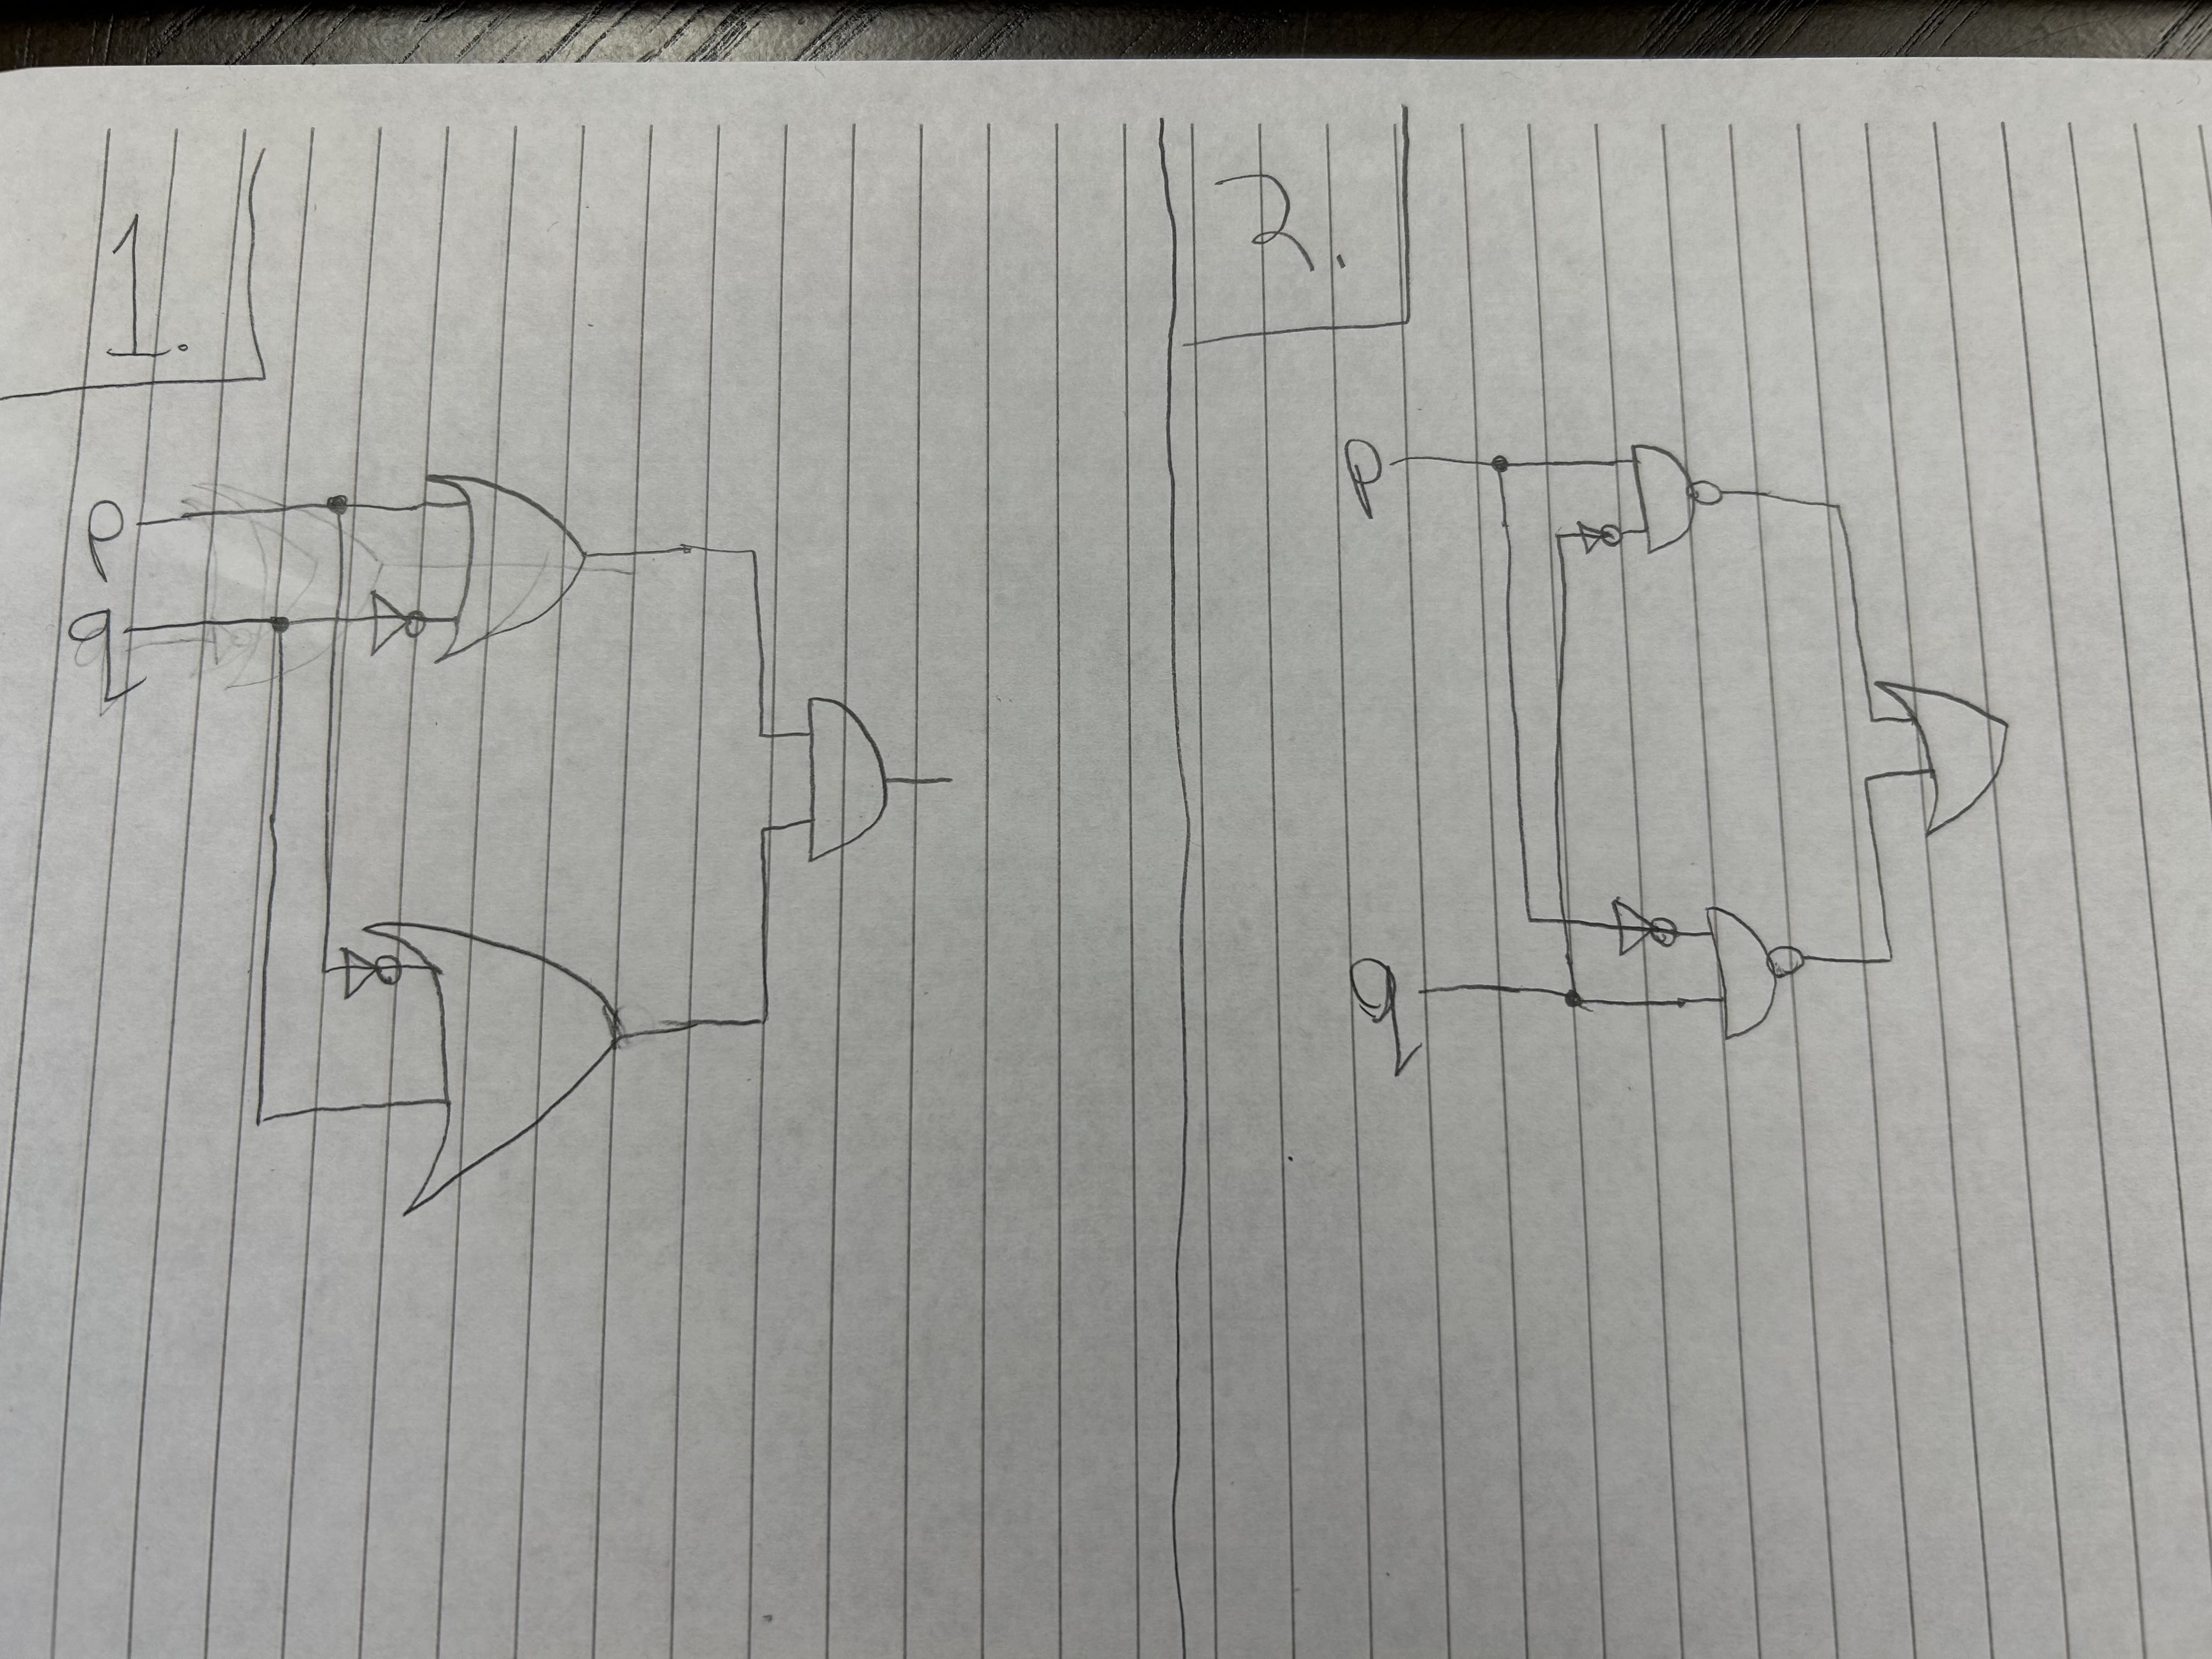 1.
p
q
2.
p
q